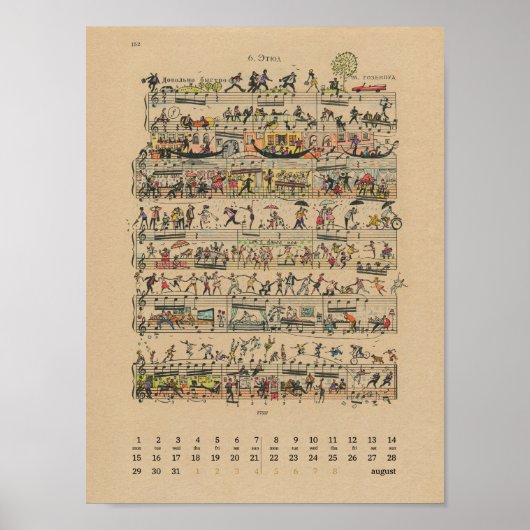 152
6. Этюд
Довольно быстро
М. ГОЗЕНПУД
1 2 3 4 5 6 7 8 9 10 11 12 13 14
mon tue wed thu fri sat sun mon tue wed thu fri sat sun
15 16 17 18 19 20 21 22 23 24 25 26 27 28
29 30 31 1 2 3 4 5 6 7 8 august